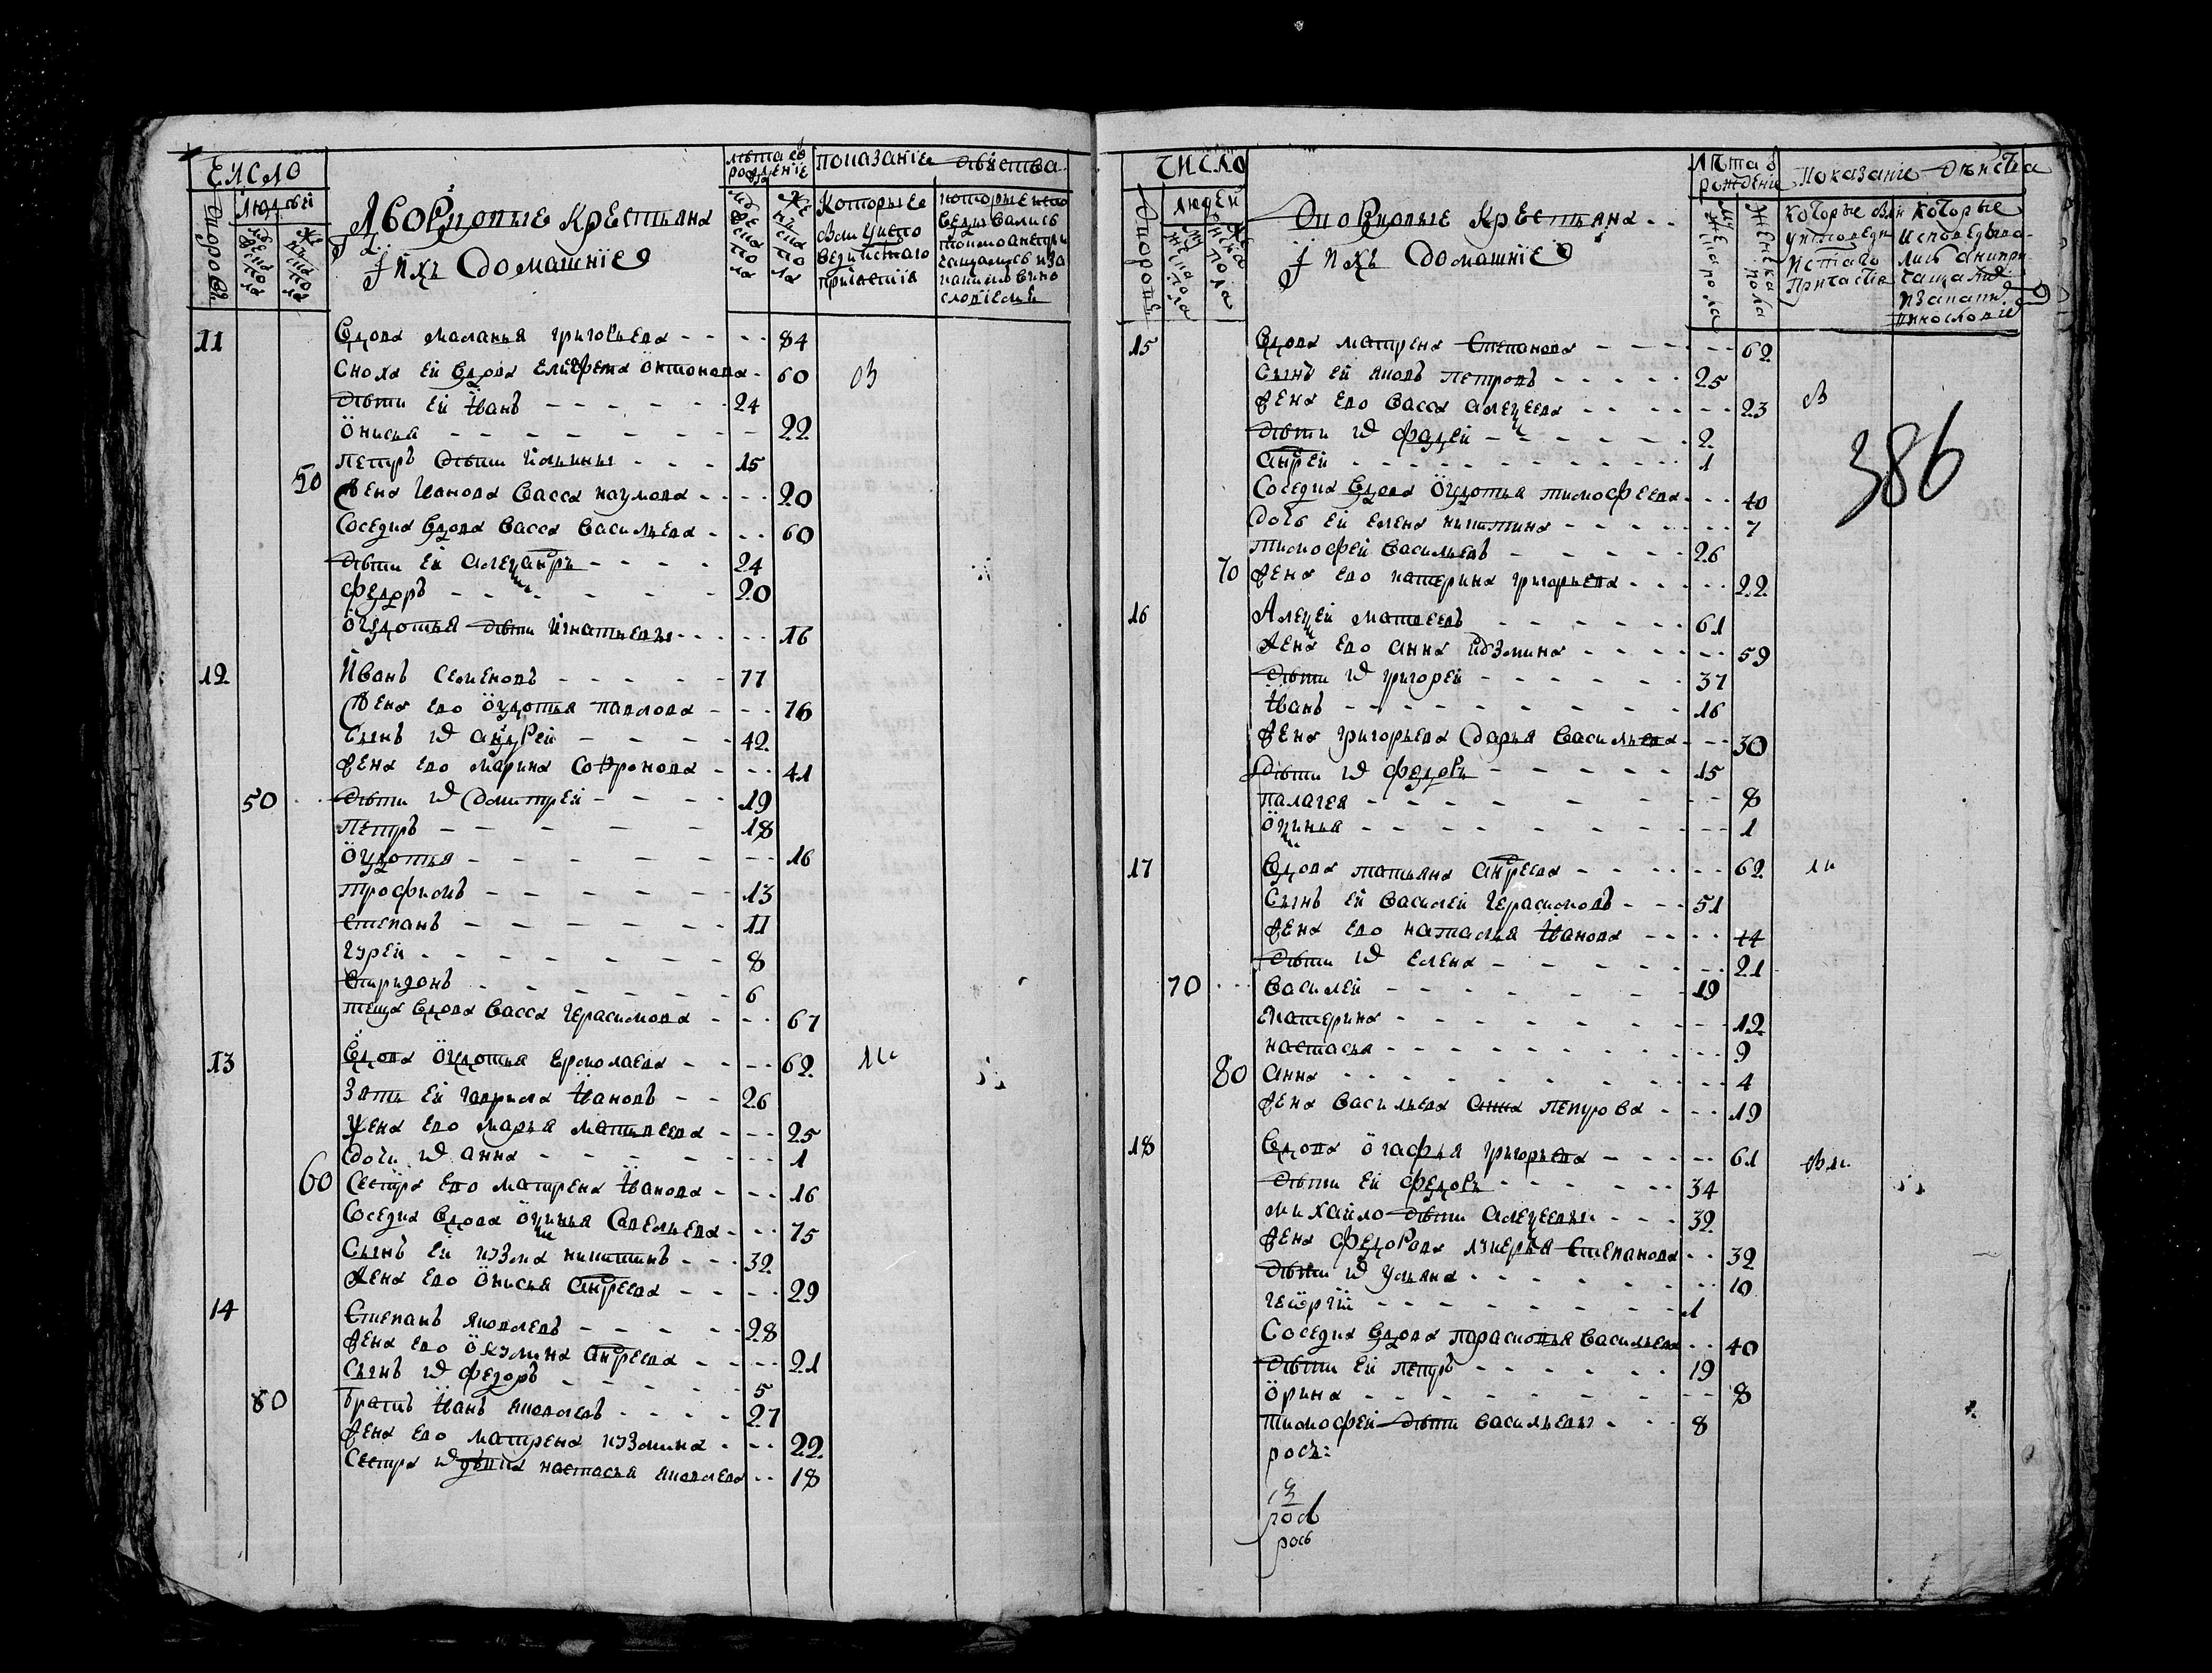 Число
дворовъ
людей
мужеска пола
женска пола
Дворовые крестьяна
и ихъ домашние
лѣта от рождение
мужеска пола
женска пола
показание действа
Которые
были у исповеди и стаго
причастия
которые исповедывались
токмо а не причащались и за
каким винословием
11 Вдова маланья григорьева - - - - 84
Сноха ей вдова елисфета онтонова - 60 в
дѣти ей иванъ - - - - - - 24
онисья - - - - - - - - 22
петръ дѣти ильины - - - 15
50 жена иванова васса наумова - - - - 20
Соседка вдова васса васильева - - - 60
дѣти ей алеѯандръ - - - - 24
федоръ - - - - - - - 20
овдотья дѣти игнатьевы - - - - - 16
12 иванъ семеновъ - - - - - 77
жена ево овдотья павлова - - - 76
Сынъ ѿ андрей - - - - 42
жена ево марина софронова - - - 41
50 - - дѣти ѿ дмитрей - - - - 19
петръ - - - - - - 18
овдотья - - - - - - - - 16
трофимъ - - - - - - 13
степанъ - - - - - - 11
гурей - - - - - - - - 8
спиридонъ - - - - - - 6
теща вдова васса герасимова - - - 67
13 вдова овдотья ермолаева - - - - 62
Зять ей гаврила ивановъ - - 26
жена ево марья матвеева - - - 25
дочь ѿ анна - - - - - - - 1
60 Сестра ево матрена иванова - - - 16
Соседка вдова оѯинья савельева - - - 75
Сынъ ей кузма никитинъ - - - 32
жена ево онисья андреева - - - - 29
14 Степанъ яковлевъ - - - - - 28
жена ево окулина андреева - - - - - 21
Сынъ ѿ федоръ - - - - - 5
80 братъ иванъ яковлевъ - - - - 27
жена ево матрена кузмина - - - 22
Сестра ѿ девка настасья яковлева - - 18
Число
дворовъ
людей
мужеска пола
женска пола
Дворовые крестьяна - -
и ихъ домашние
Лѣта от рождение
мужеска пола
женска пола
Показание действа
Которые были
у исповеди
и стаго
Причастия
Которые
исповедыва-
лись а не при-
чащались
и за каким
винословием
15 Вдова матрена степанова - - - - - 62
Сынъ ей яковъ петровъ - - - - - 25
жена ево васса алеѯеева - - - - - 23 в
дѣти ѿ фадей - - - - - - 2
андрей - - - - - - - - - - 1
386
Соседка вдова овдотья тимофеева - - - 40
дочь ей елена никитина - - - - - - 7
тимофей васильевъ - - - - - 26
70 жена ево катерина григорьева - - - - - 22
16 Алеѯей матвеевъ - - - - - - 61
жена ево анна кузмина - - - - - - 59
дѣти ѿ григорей - - - - - - 37
иванъ - - - - - - - - - 16
жена григорьева дарья васильева - - - 30
дѣти ѿ федоръ - - - - - - 15
палагея - - - - - - - - - 8
оѯинья - - - - - - - - - - 1
17 Вдова татьяна андреева - - - - - - 62
Сынъ ей василей герасимовъ - - - 51
жена ево наталья иванова - - - - 44
дѣти ѿ елена - - - - - - - 21
70 - - василей - - - - - - - - 19
катерина - - - - - - - - - 12
настасья - - - - - - - - - - 9
80 анна - - - - - - - - - 4
жена васильева анна петрова - - - - 19
18 Вдова огафья григорьева - - - - - 61
дѣти ей федоръ - - - - - - 34
михайло дѣти алеѯеевы - - - 32
жена федорова лукерья степанова - - 32
дѣти ѿ ульяна - - - - - - - - 10
георгій - - - - - - - - 1
Соседка вдова парасковья васильева - - 40
дѣти ей петръ - - - - - - 19
орина - - - - - - - - - 8
тимофей дѣти васильевы - - - 8
росъ:
рось
рось